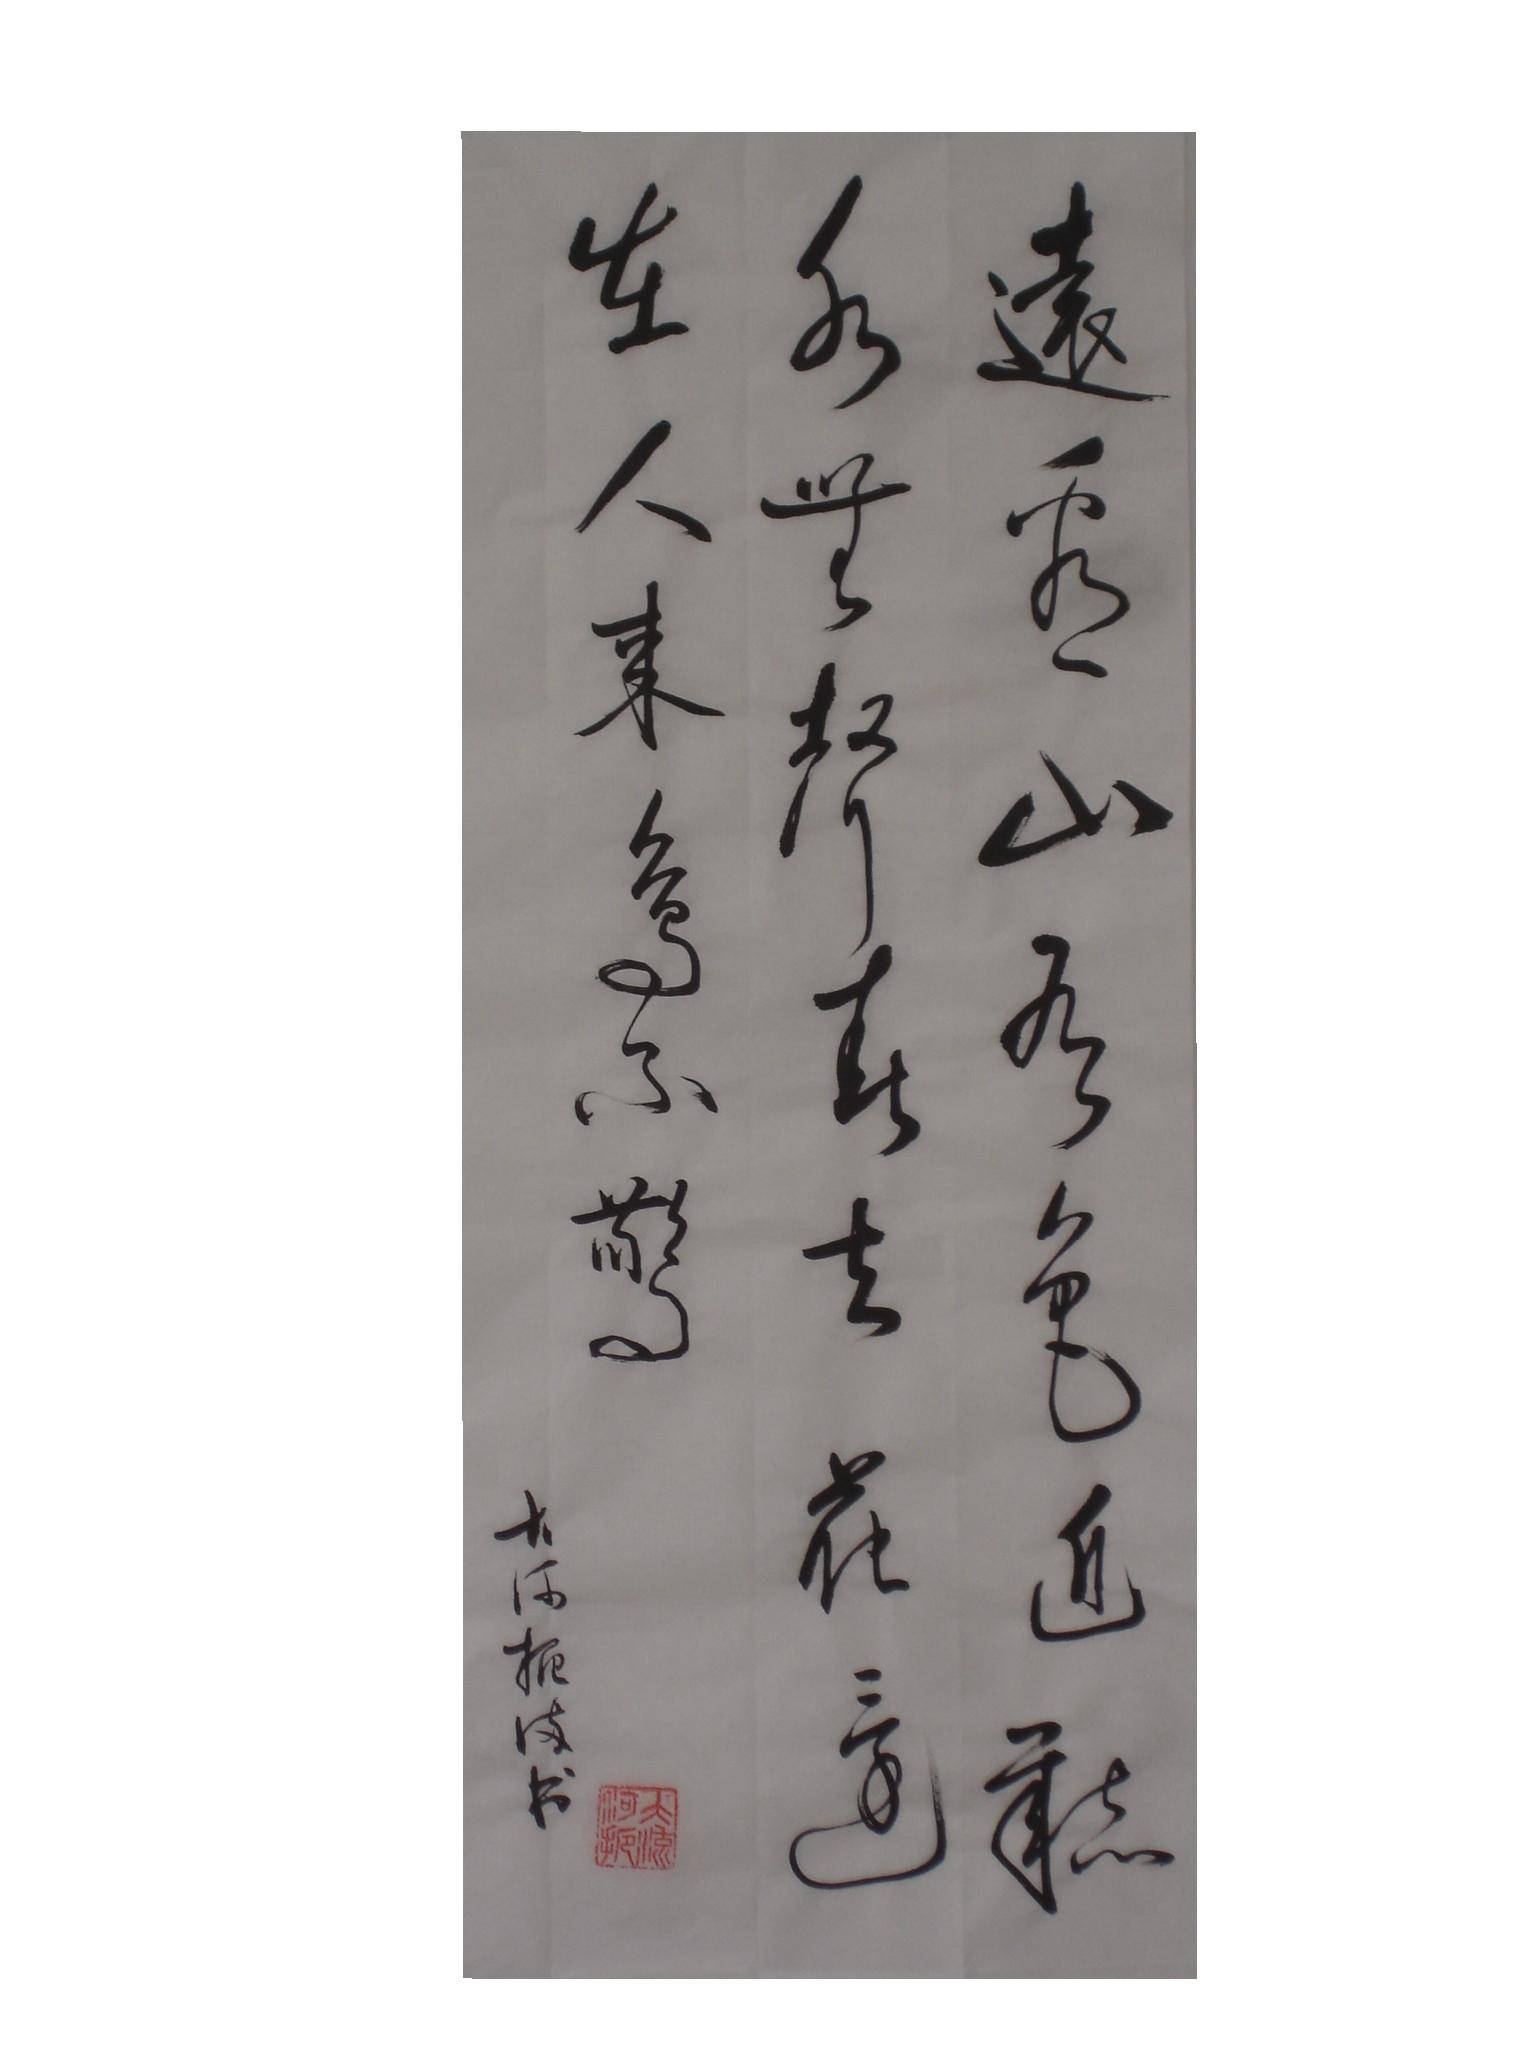 遠看山有色近聽
水無聲春去花還
在人來鳥不驚
大河振海书